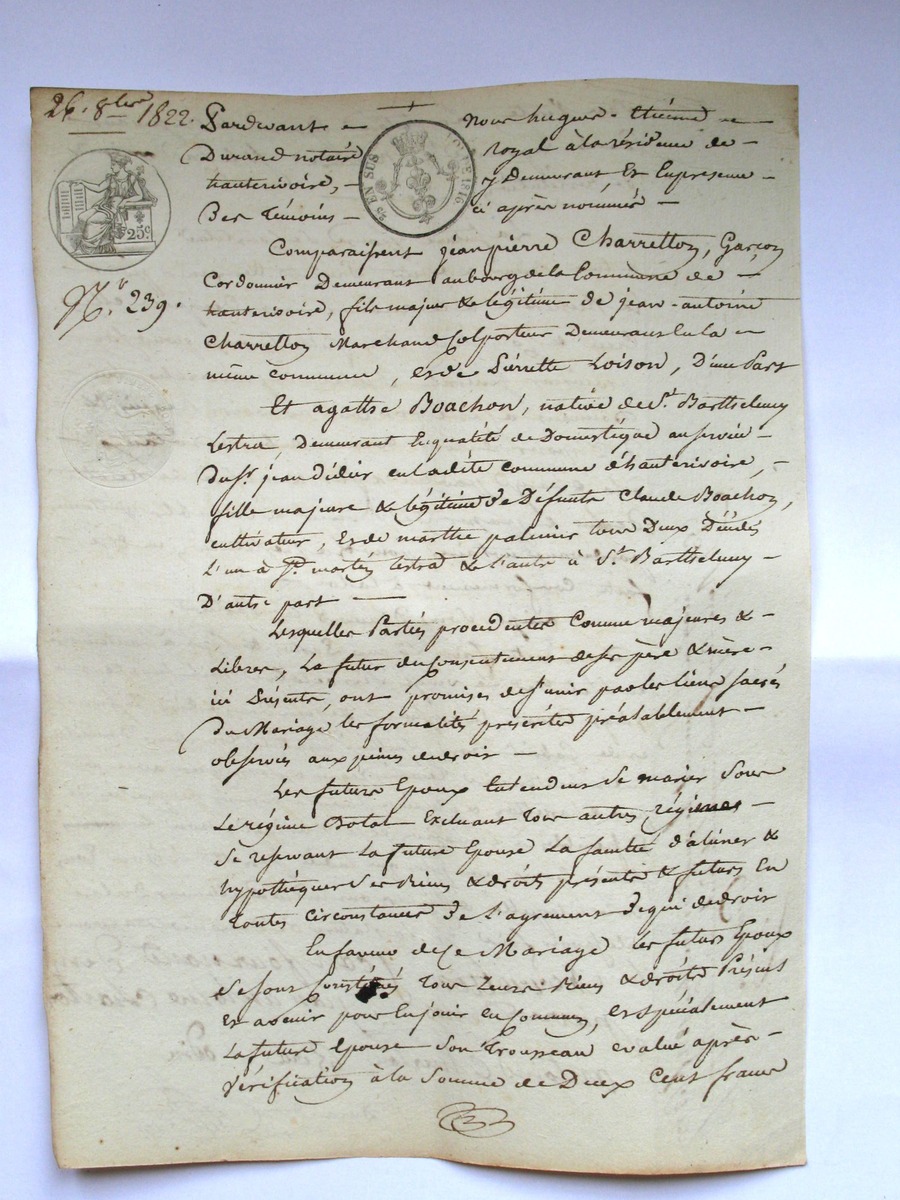 26. 8bre 1822.
Pardevant nous hugues Etiénne
Durand notaire royal à la résidence de
hauterivoire, y Demeurant Et Enpresence
Des Témoins ci après nommés
EN SUS
1816
25c
N.o 239.
Comparaissent jean pierre Charretton, Garçon
Cordonnier Demeurant aubourg de la Commune de
hauterivoire, fils majeur & légitime de jean-antoine
Charretton Marchand Colporteur Demeurant En la
même commune, et de Pierrette Loison, D'une Part
Et agathe Boachon, native de St. Barthelemy
Lestra, Demeurant En qualité de Domestique au service
Du Sr. jean Didier en ladite commune d'hauterivoire,
fille majeure & légitime de Défunts Claude Boachon,
cultivateur, Et de marthe palmier tous Deux Décédés
L'un à St. martin Lestra & L'autre à St. Barthelemy
D'autre part
Lesquelles Parties procedentes Comme majeures &
Libres, Le futur du Consentement de ses père & mère
ici Présents, ont promises de s'unir par les liens sacrés
Du Mariage les formalités préalablement
observées aux peines de droit
Les futurs Epoux Entendent Se marier Sous
Le régime Dotal Excluant Tous autres régimes
Se reservant La future Epouse La faculté d'aliéner &
hypothéquer Ses Biens & droits présents & futurs En
Toutes Circonstances De L'agrément De qui de droit
En faveur de Ce Mariage les futurs Epoux
Se sont constitués Tous Leurs Biens & droits Présents
Et avenir pour En jouir en Commun, et spécialement
La future Epouse Son Trousseau evalué après
Vérification à la Somme de Deux Cent francs